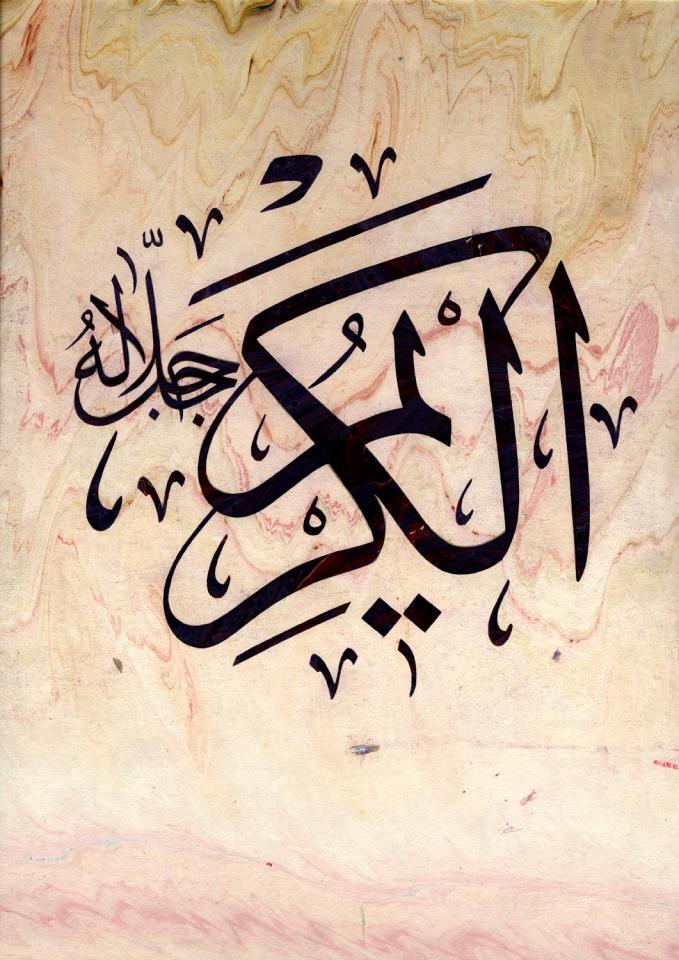 الْكَرِيمُ
جَلَّ جَلَالُهُ